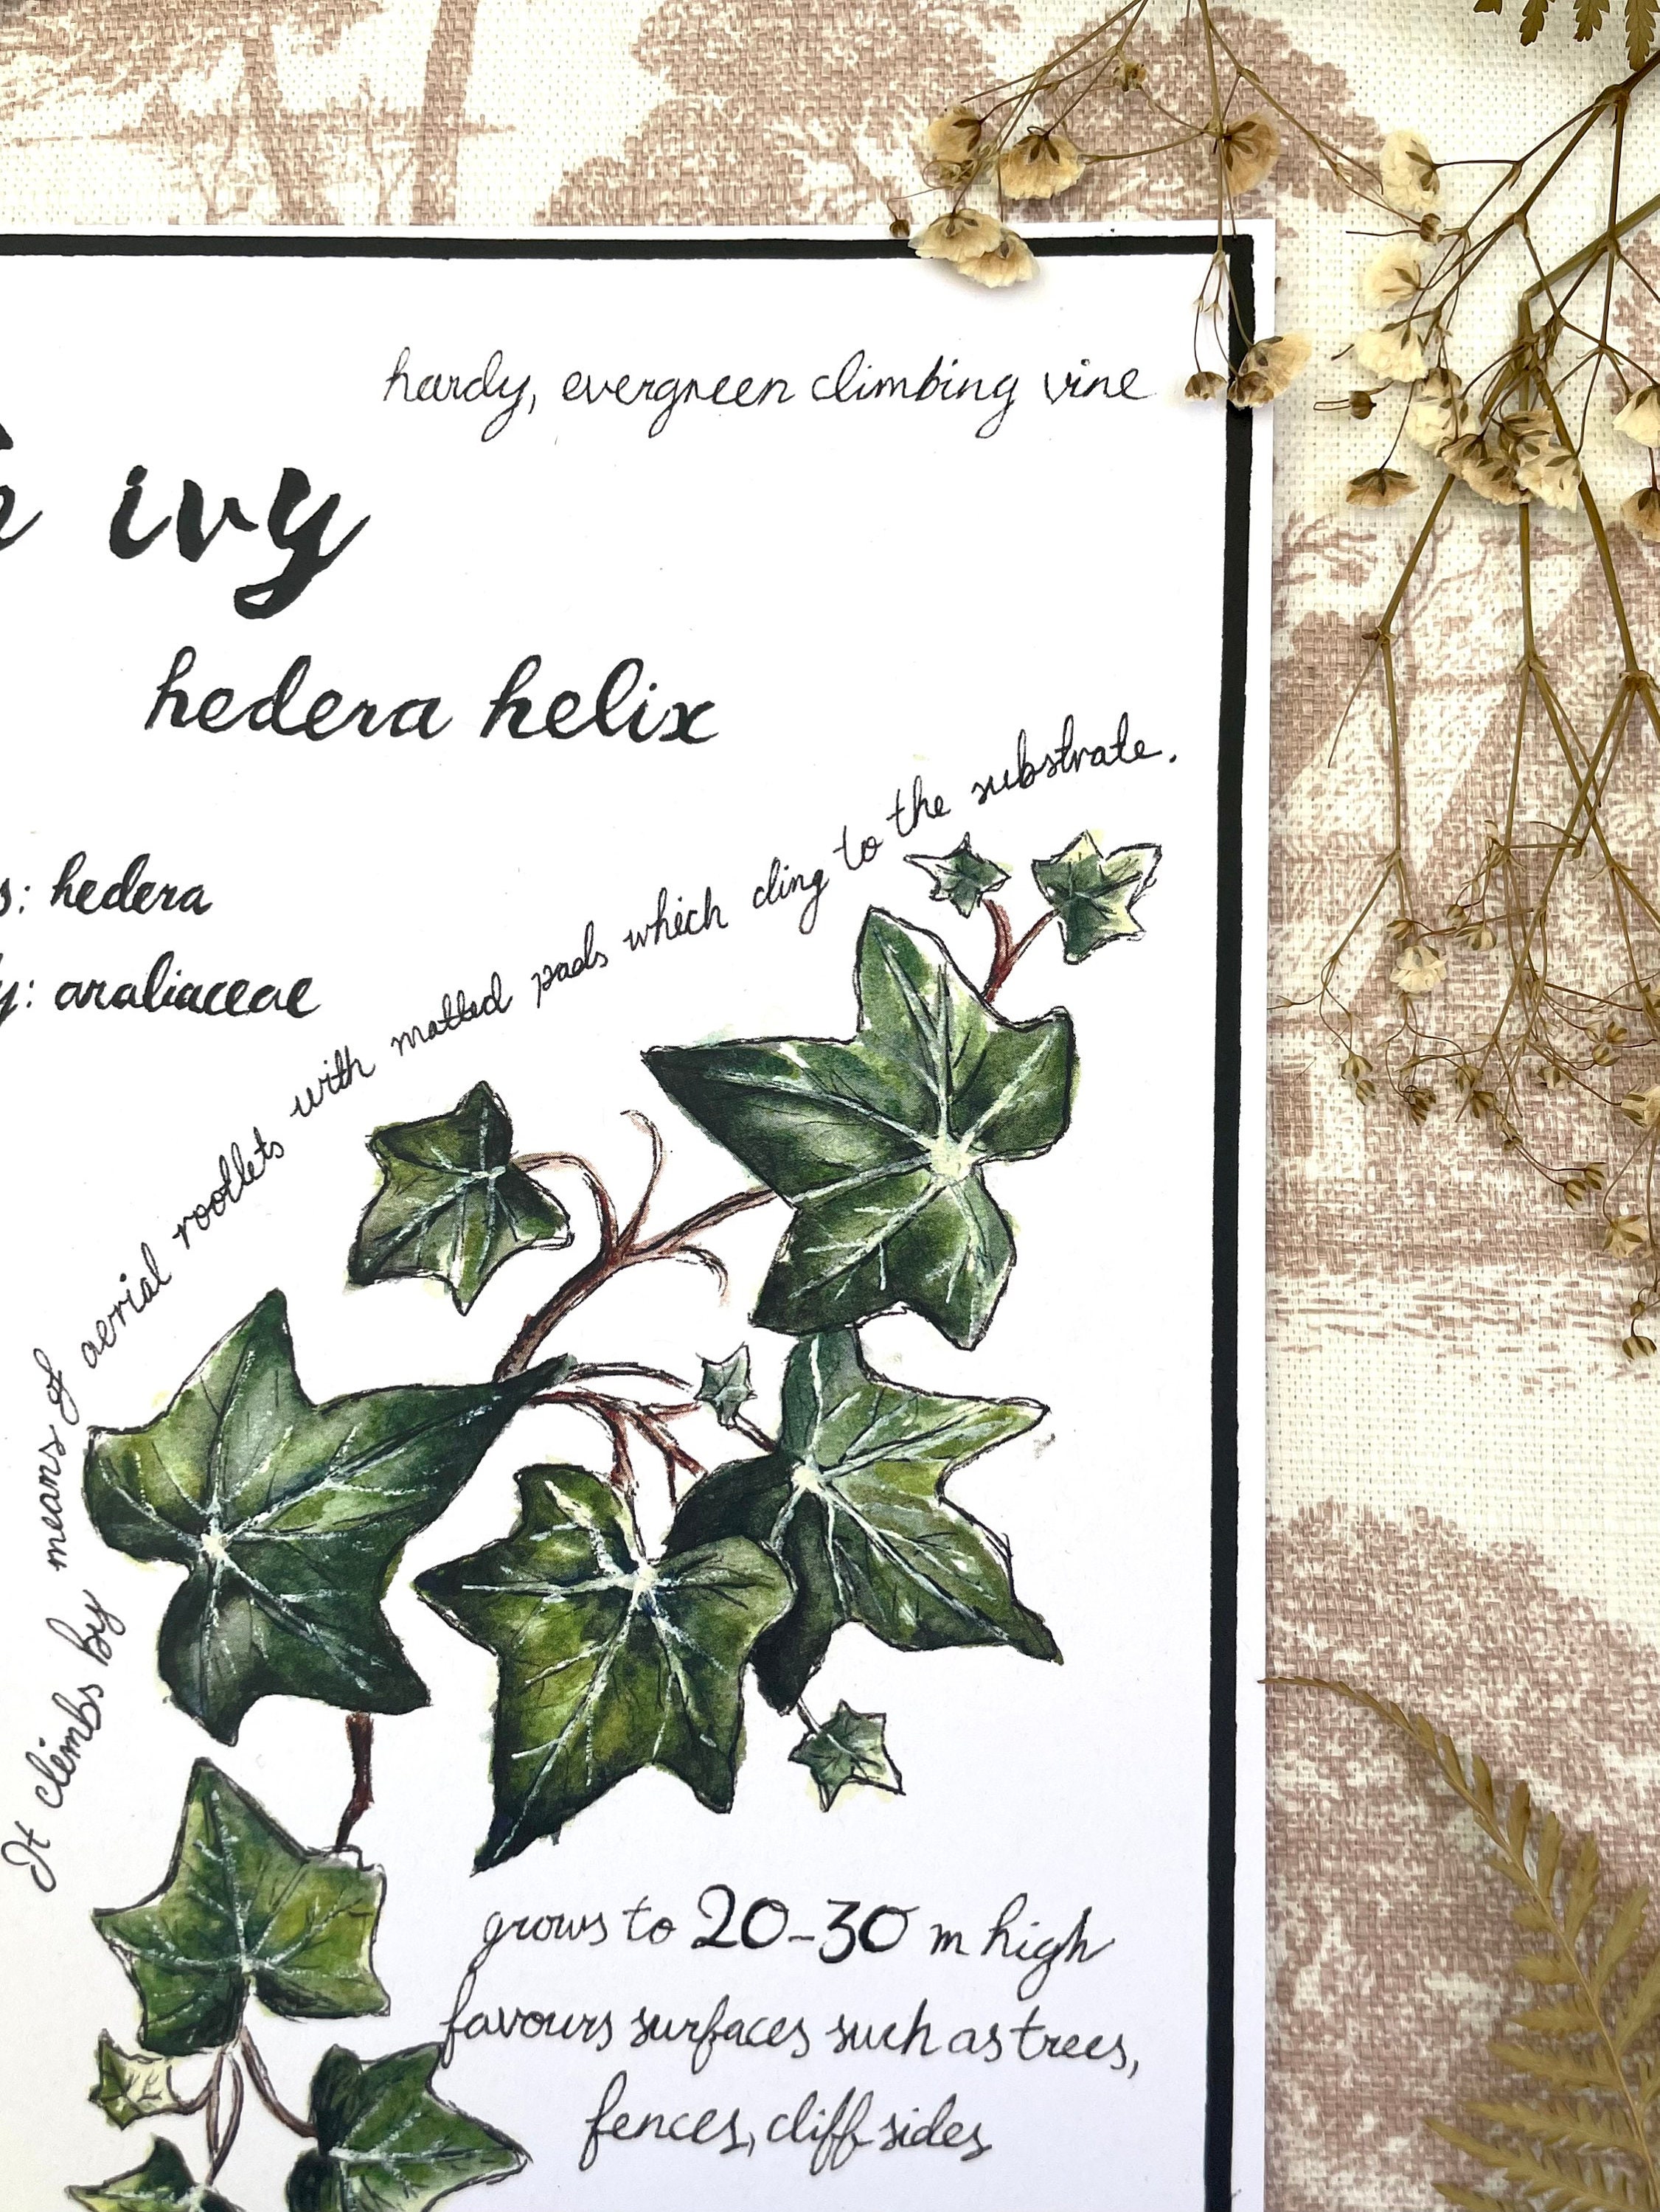 hardy, evergreen climbing vine
ivy
hedera helix
s: hedera
y: araliaceae
It climbs by means of aerial rootlets with matted pads which cling to the substrate.
grows to 20-30 m high
favours surfaces such as trees,
fences, cliff sides